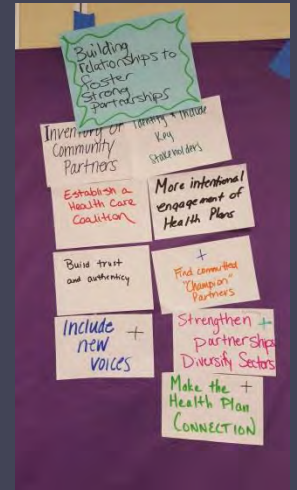 Building
relationships to
foster
strong
partnerships
Inventory of
Community
Partners
Identify + Include
Key
Stakeholders
Establish a
Health Care
Coalition
More intentional
engagement of
Health Plans
Build trust
and authenticy
+
Find committed
"Champion"
Partners
Include +
new
voices
Strengthen +
partnership
Diversify Sectors
Make the +
Health Plan
CONNECTION